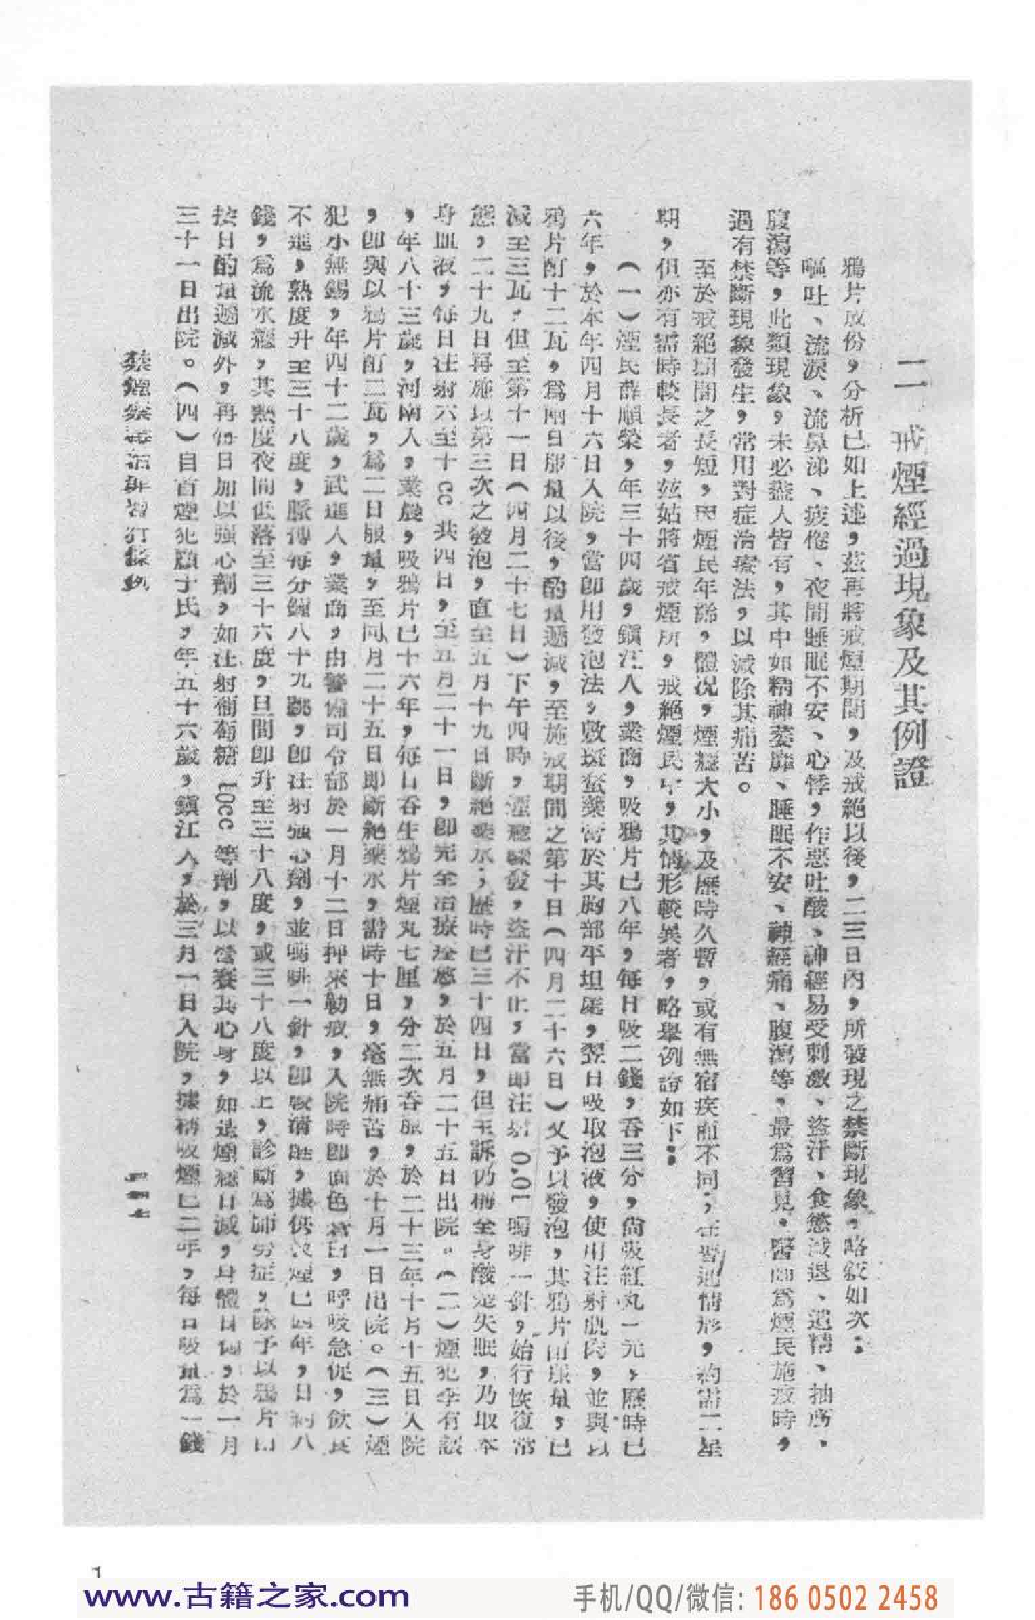 二　戒煙經過現象及其例證
鴉片成份，分析已如上述，茲再將戒煙期間，及戒絕以後，二三日內，所發現之禁斷現象，略叙如次：
嘔吐、流淚、流鼻涕、疲倦、夜間睡眠不安、心悸，作惡吐酸、神經易受刺激、盜汗、食慾減退、遺精、抽筋、
腹瀉等，此類現象，未必盡人皆有，其中如精神萎靡、睡眠不安、神經痛、腹瀉等，最為習見，醫師為煙民施戒時，
遇有禁斷現象發生，常用對症治療法，以減除其痛苦。
至於戒絕期間之長短，因煙民年齡，體況，煙癮大小，及歷時久暫，或有無宿疾而不同；在普通情形，約需二星
期，但亦有需時較長者，茲姑將省戒煙所，戒絕煙民中，其情形較異者，略舉例證如下：
（一）煙民薛順榮，年三十四歲，鎮江人，業商，吸鴉片已八年，每日吸二錢，吞三分，尚吸紅丸一元，歷時已
六年，於本年四月十六日入院，當即用發泡法，敷斑蝥藥膏於其胸部平坦處，翌日吸取泡液，使用注射肌肉，並與以
鴉片酊十二瓦，為兩日服量以後，酌量遞減，至施戒期間之第十日（四月二十六日）又予以發泡，其鴉片酊服量，已
減至三瓦，但至第十一日（四月二十七日）下午四時，煙癮驟發，盜汗不止，當即注射0.01嗎啡一針，始行恢復常
態，二十九日再施以第三次之發泡，直至五月十九日斷絕藥水；歷時已三十四日，但主訴仍稱全身酸楚失眠，乃取本
身血液，每日注射六至十cc共四日，至五月二十一日，即完全治療痊愈，於五月二十五日出院。（二）煙犯李有
，年八十三歲，河南人，業農，吸鴉片已十六年，每日吞生鴉片煙丸七厘，分二次吞服，於二十三年十月十五日入院
，即與以鴉片酊二瓦，為二日服量，至同月二十五日即斷絕藥水，需時十日，毫無痛苦，於十月一日出院。（三）煙
犯小無錫，年四十二歲，武進人，業商，由警備司令部於一月十二日押來勒戒，入院時即面色蒼白，呼吸急促，飲食
不進，熱度升至三十八度，脈搏每分鐘八十九跳，即注射強心劑，並嗎啡一針，即較清醒，據供吸煙已四年，日約八
錢，為流水癮，其熱度夜間低落至三十六度，旦間即升至三十八度，或三十八度以上，診斷為肺癆症，除予以鴉片酊
按日酌量遞減外，再每日加以強心劑，如注射葡萄糖10cc等劑，以營養其心身，如是煙癮日減，身體日健，於一月
三十一日出院。（四）自首煙犯顧于氏，年五十六歲，鎮江人，於三月一日入院，據稱吸煙已二年，每日吸量為一錢
1
www.古籍之家.com
手机/QQ/微信: 186 0502 2458